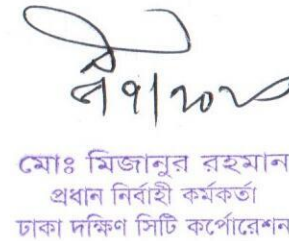 মোঃ মিজানুর রহমান
প্রধান নির্বাহী কর্মকর্তা
ঢাকা দক্ষিণ সিটি কর্পোরেশন